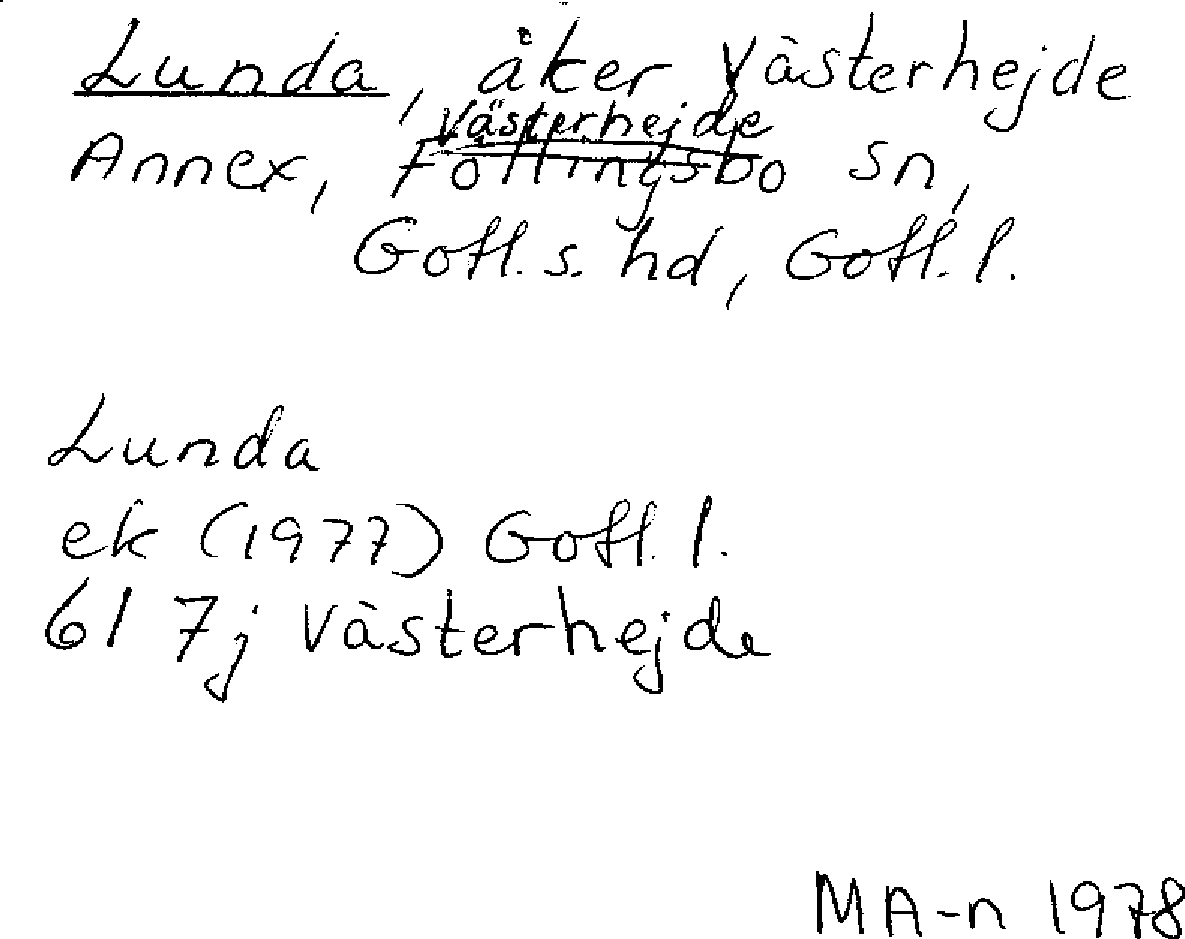 Lunda, åker Västerhejde
Västerhejde
Annex, Follingsbo sn,
Gotl. s. hd, Gotl. l.
Lunda
ek (1977) Gotl. l.
6I 7j Västerhejde
MA-n 1978